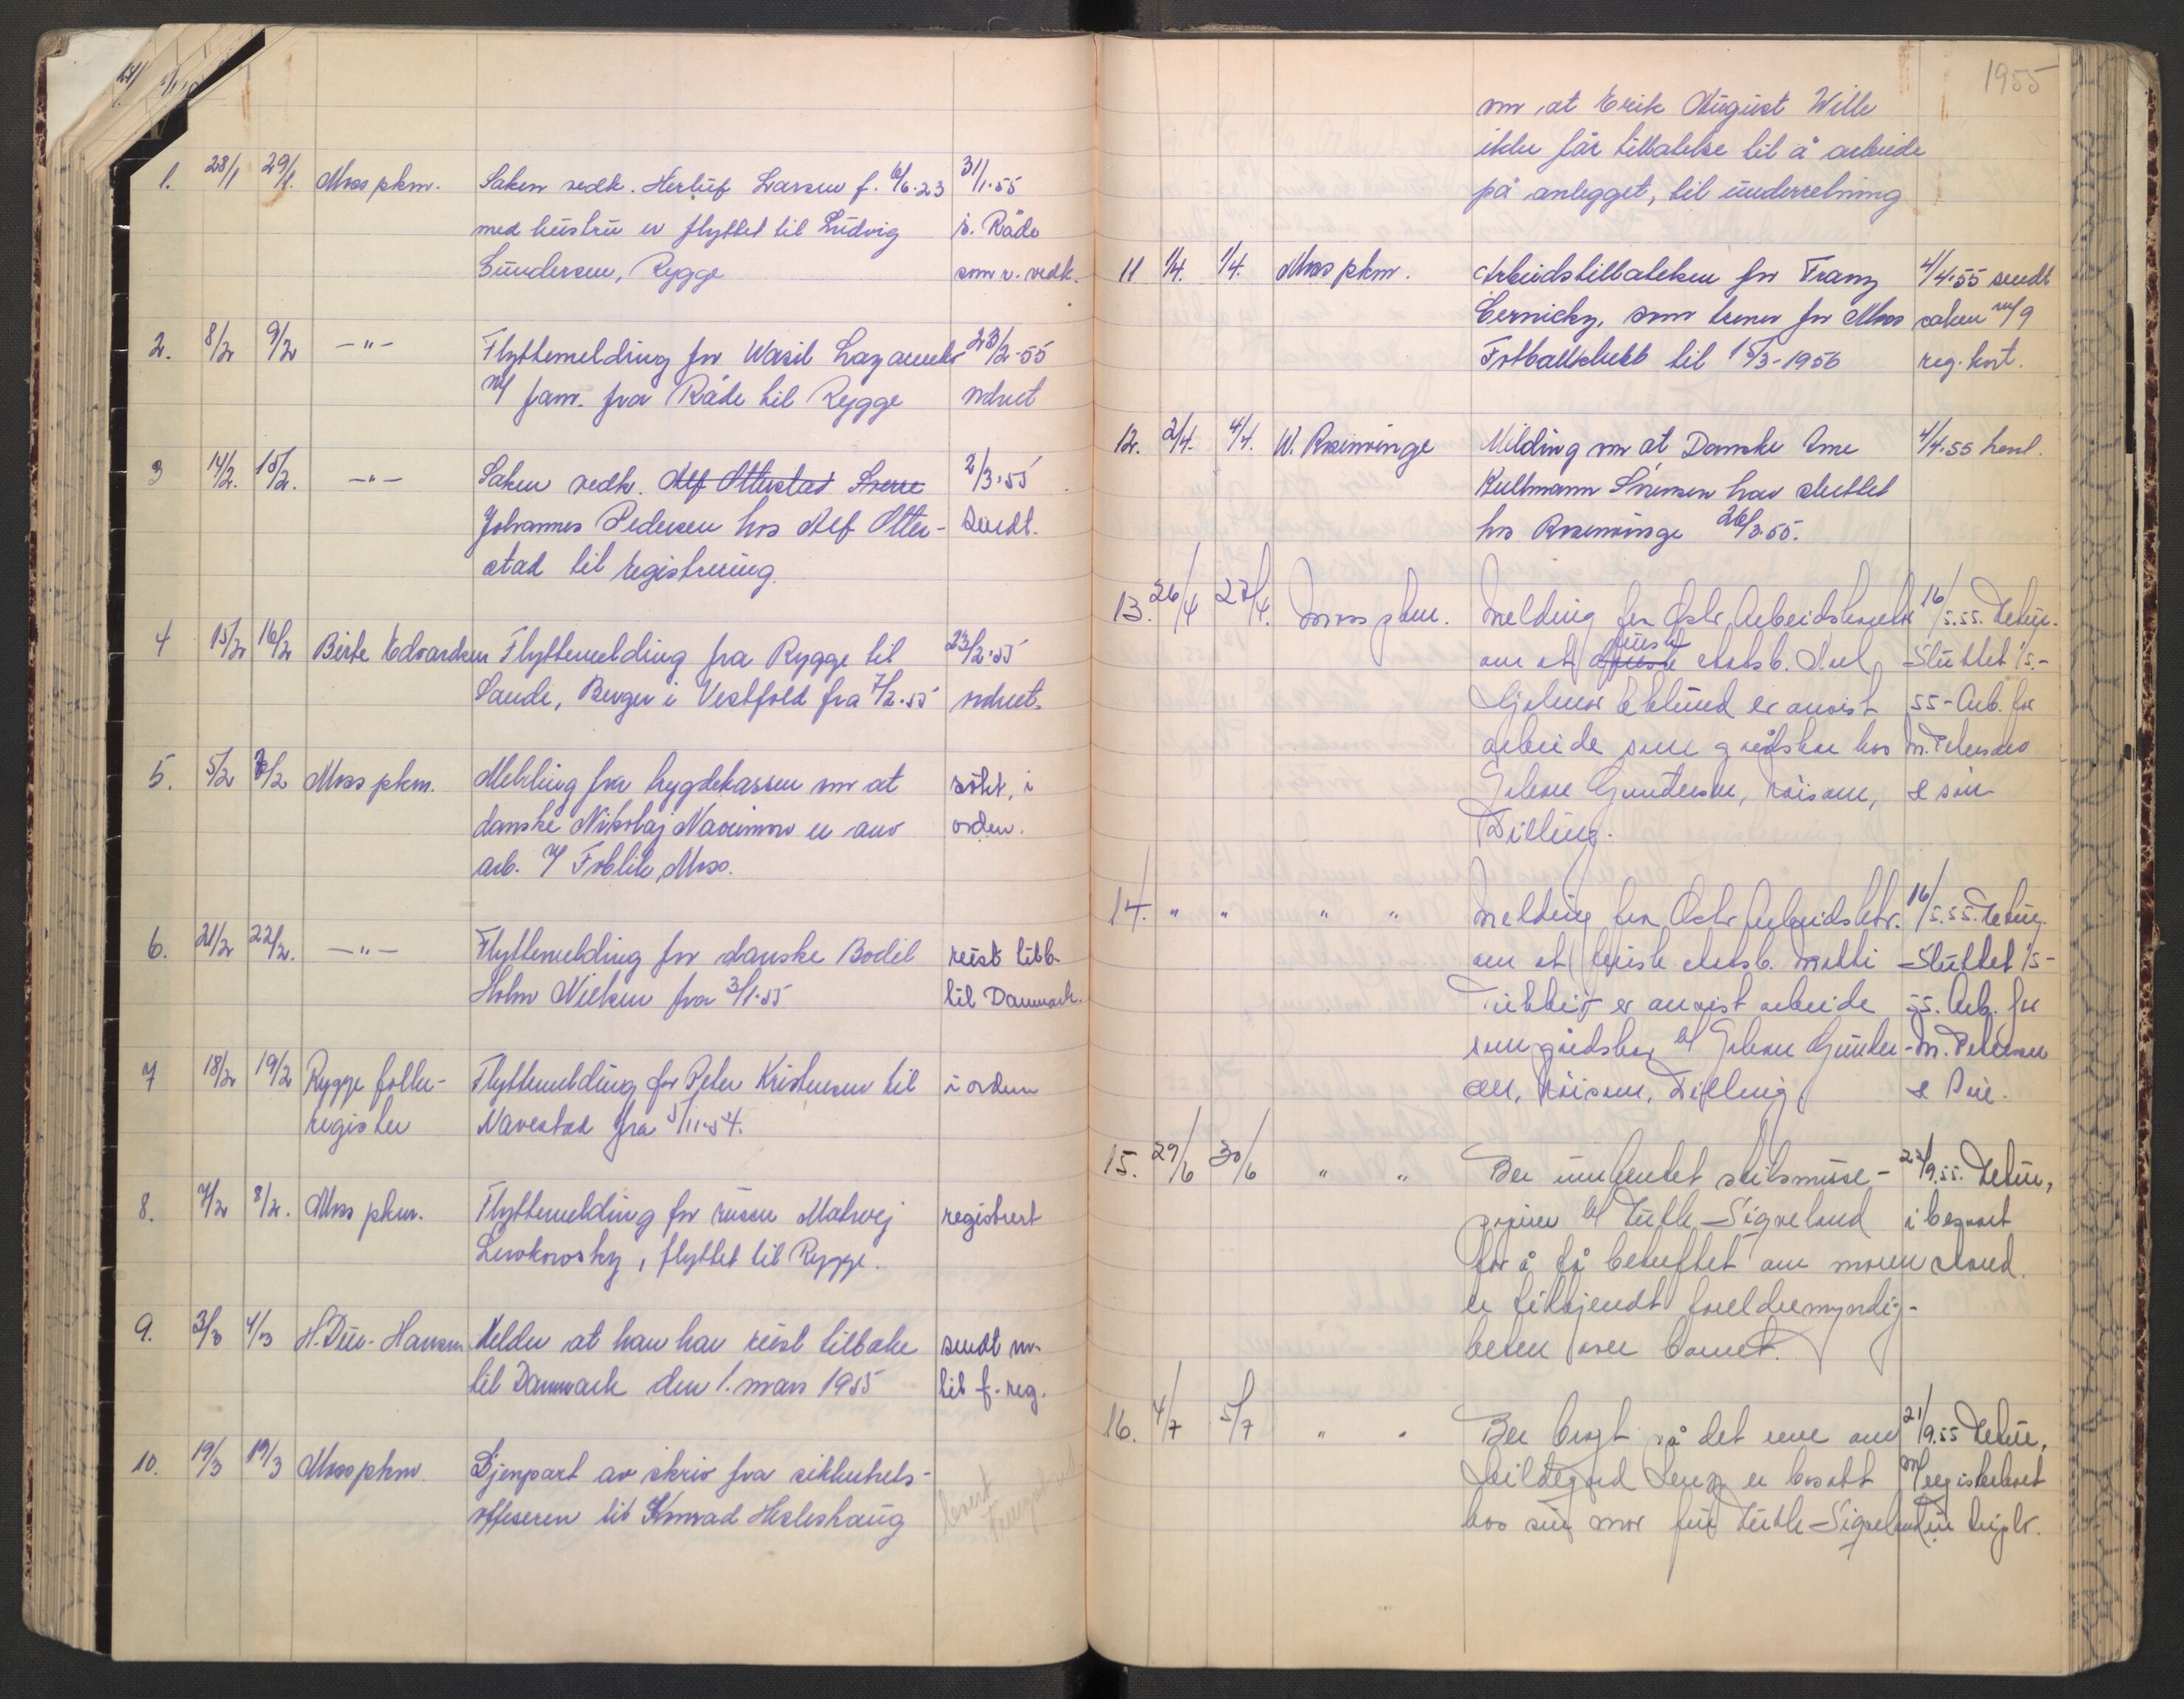 1. 28/1 29/1. Moss pkm. Saken vedk. Herluf Larsen f. 6/6.23 31/1.55
med hustru er flyttet til Ludvig s. Råde
Gundersen, Rygge som r. vedk.
2. 8/2 9/2 —"— Flyttemelding for Wasil Lazarenko 23/2-55
m/ fam. fra Råde til Rygge ordnet
3 14/2. 15/2. —"— Saken vedk. Alf Otterstad Sverre 2/3.55
Johannes Pedersen hos Alf Otter- Sendt.
stad til registrering.
4 15/2 16/2 Birte Edvardsen Flyttemelding fra Rygge til 23/2.55
Sande, Berger i Vestfold fra 7/2.55 ordnet.
5. 5/2 /2 Moss pkm. Melding fra trygdekassen om at i
danske Nikolaj er anv orden.
arb. v/ Foblik, Moss.
6. 21/2 22/2. —"— Flyttemelding for danske Bodil reist tilb.
Holm Nielsen fra 3/1.55 til Danmark.
7 18/2 19/2 Rygge folke- Flyttemelding for Peter Kristensen til i orden
register Navestad fra 5/11.54.
8. 7/2 8/2. Moss pkm. Flyttemelding for russen Matvej registrert
Lewkowsky, flyttet til Rygge.
9. 3/3 4/3 H. Due-Hansen Melder at han har reist tilbake sendt m.
til Danmark den 1. mars 1955 til f.reg.
10. 19/3 19/3 Moss pkm. Gjenpart av skriv fra sikkerhets-
offiseren til Konrad Hesleshaug
1955
om at Erik August Wille
ikke får tillatelse til å arbeide
på anlegget, til underretning
11 1/4. 1/4. Moss pkm. Arbeidstillatelsen for Franz 4/4.55 sendt
Cernicky, som trener for Moss saken m/9
Fotballklubb til 15/3-1956 reg. kort.
12. 2/4. 4/4. W. Rosenvinge Melding om at Danske Arne 4/4.55 henl.
Kultmann Sörensen har sluttet
hos Rosenvinge 26/3.55.
13. 26/4 27/4. Moss pkm. Melding fra Østf. Arbeidskontor 16/5.55. Retur.
finsk
om at statsb. Sluttet 1/5.-
Hjalmar Eklund er anvist 55-Arb. for
arbeide som gårdskar hos M. Petersens
Johan Gundersen, Roisom, & sön
Dilling.
14. " " " " Melding fra Østf. Arbeidsktr. 16/5.55. Retur.
om at finsk statsb. Matti Sluttet 1/5-
er anvist arbeide 55. Arb. for
som gårdskar hos Johan Gunder- M. Petersen
sen, Roisom, Dilling & Sön.
15. 29/6 30/6 " " Ber innhentet skilsmisse- 2/9.55. Retur,
papirer til Ruth Sigveland i besvart
for å få bekreftet om moren stand.
er tilkjendt foreldremyndig-
heten over barnet.
16. 4/7 5/7 " " Ber bragt på det rene om 21/9.55 Retur,
Hildegard Lenz er bosatt m/registerkort
hos sin mor fru Ruth Sigveland